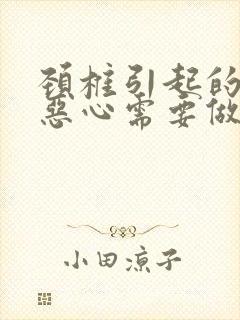 颈椎引起的
恶心需要做
小田凉子